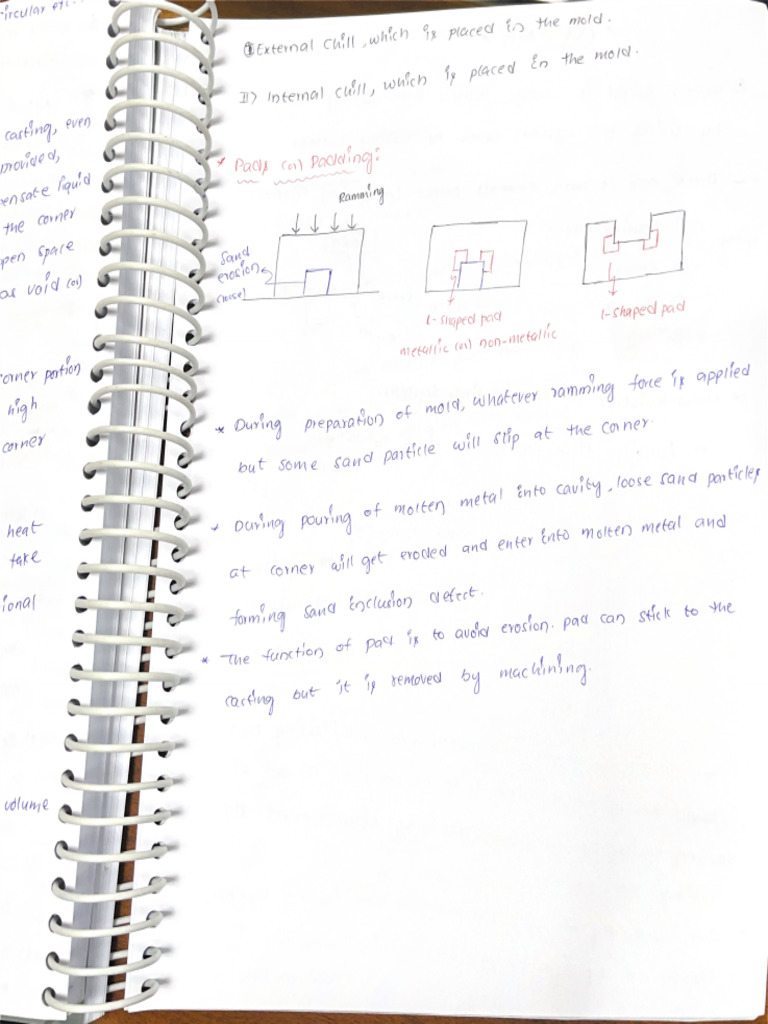 circular etc..
casting, even
provided,
ensate liquid
the corner
pen space
as void (or)
corner portion
high
corner
heat
take
ional
volume
I) External chill, which is placed in the mold.
II) Internal chill, which is placed in the mold.
* Pads (or) Padding:
Ramming
Sand
erosion
L-shaped pad
metallic (or) non-metallic
L-shaped pad
* During preparation of mold, whatever ramming force is applied
but some sand particle will slip at the corner.
* During pouring of molten metal into cavity, loose sand particles
at corner will get eroded and enter into molten metal and
forming sand inclusion defect.
* The function of pad is to avoid erosion. pad can stick to the
casting but it is removed by machining.